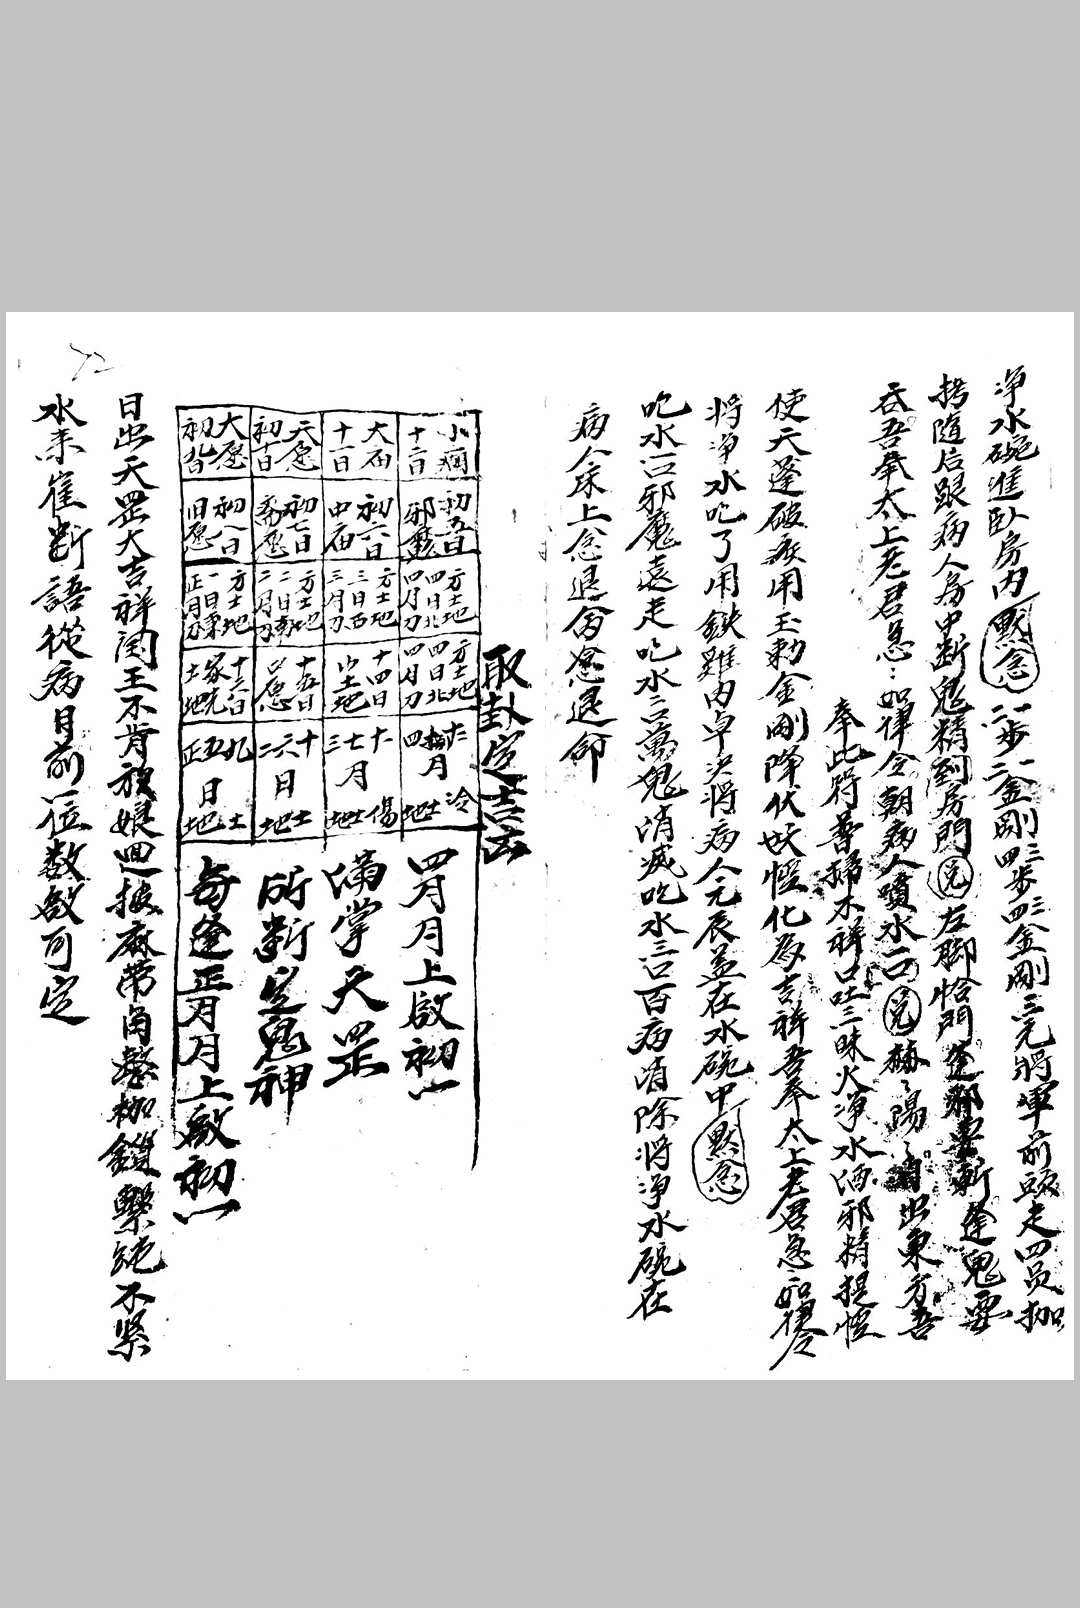 净水碗進卧房内默念一步一金剛二步二金剛三步三金剛四步四金剛三元將軍前頭走四员枷
拷随后跟病人房中断鬼精到房門完左脚恰門逢邪要斬逢鬼要
吞吾奉太上老君急:如律令朝病人噴水一口完赫:陽:日出東方吾
奉此符普掃不祥口吐三昧火净水洒邪精提怪
使天蓬破疾用玉勅金剛降伏妖怪化為吉祥吾奉太上老君急:如律令
將净水吃了用鉄雞内卓決將病人元辰盖在水碗中默念
吃水一口邪魔遠走吃水二口萬鬼消滅吃水三口百病消除將净水碗在
病人床上念退
取卦定吉凶
小廟十二日
大庙十一日
天愿初十日
大愿初九皆
初五日邪魔
初六日中庙
初七日斋愿
初八日旧愿
方土地四日北四月刀
方土地三日西三月刀
方土地二日南二月刀
方土地一日東正月刀
方土地四日北四月刀
十四日山土地
十五日口愿
十六日家先土地
四月冷土地
三七十一月傷土地
二六十日土地
正五九日土地
四月月上啟初一
满掌天罡
所断定鬼神
每逢正月月上啟初一
日出天罡大吉祥閻王不肯放娘回披麻带角愁枷鎖繫绳不紧
水来崔断語從病日前一位数敨可定